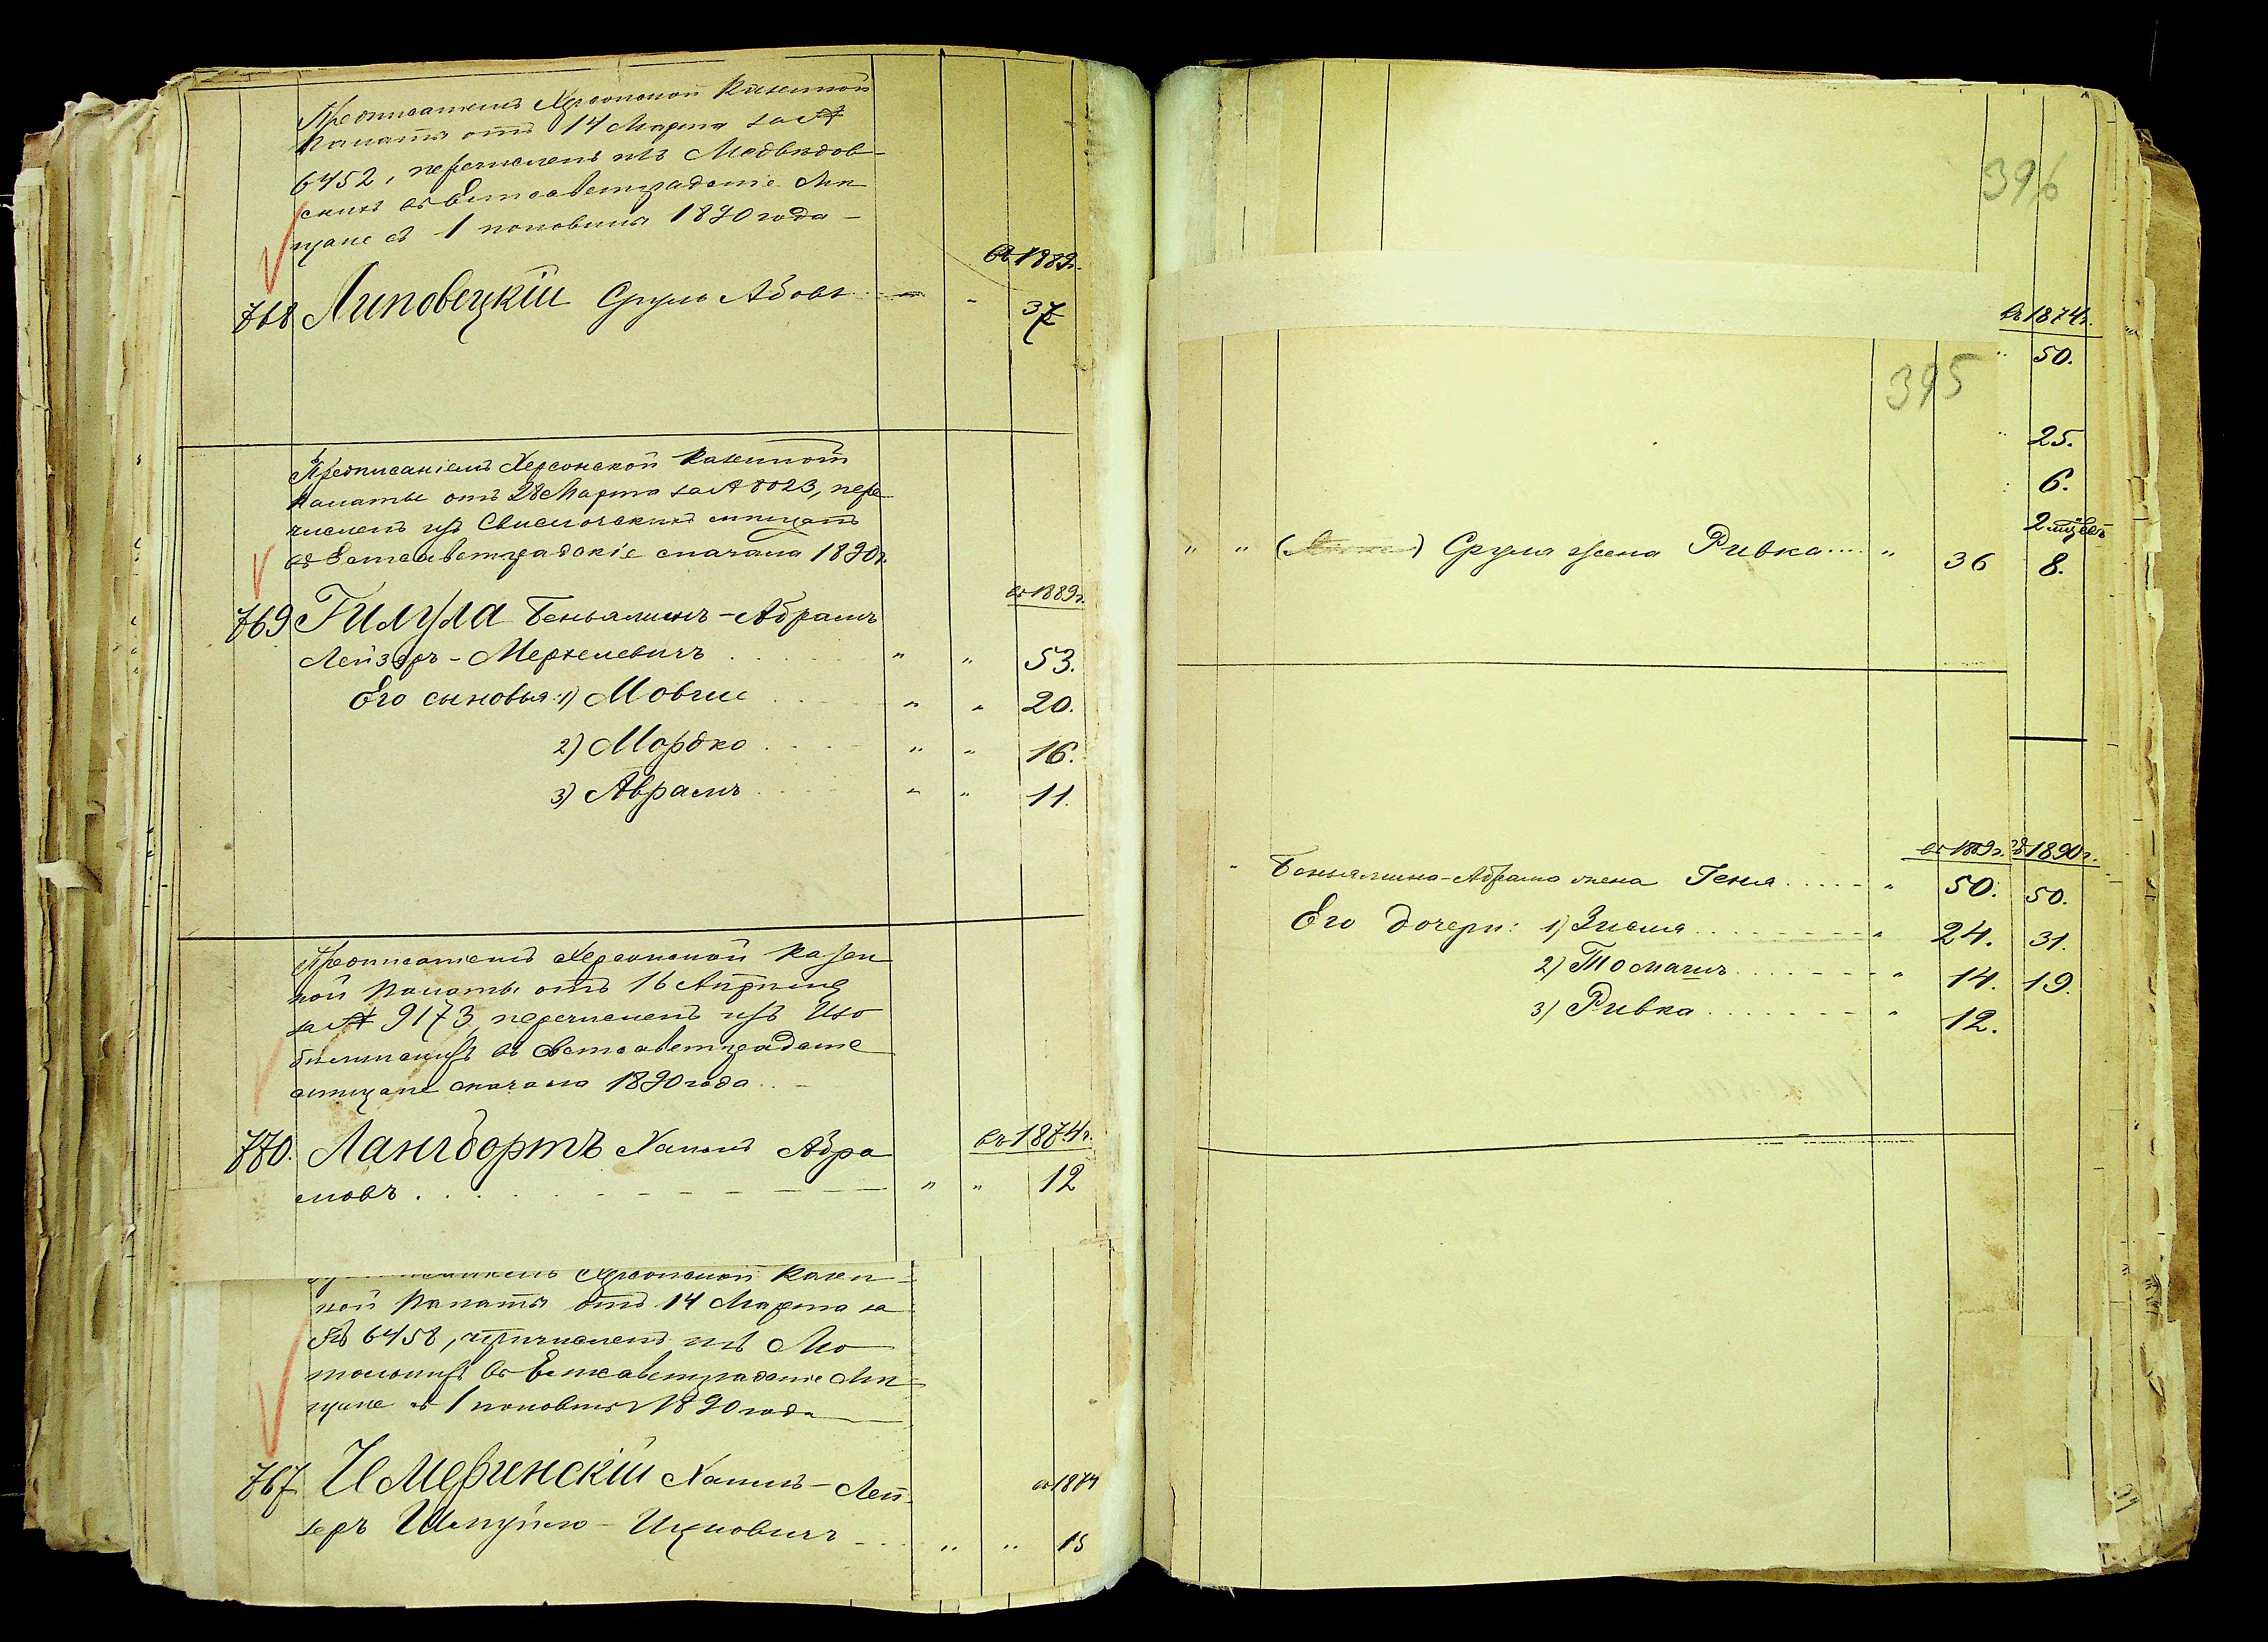 Предписанiемъ Херсонской Казенной
Палаты отъ 14 Марта за №
6452, перечисленъ изъ Медвѣдов-
скихъ въ Елисаветградскiе Мѣ
щане съ 1 половины 1890 года
въ 1889г.
768 Липовецкiй Сруль Абовъ " 37
Предписанiемъ Херсонской Казенной
Палаты отъ 28 Марта за № 8023, пере
численъ изъ Свислочскихъ мѣщанъ
въ Елисаветградскiе сначала 1890г.
въ 1889г.
769 Гилула Беньяминъ-Абрамъ
Лейзеръ-Меркелевичъ " " 53.
Его сыновья: 1) Мовши " " 20.
2) Мордко " " 16.
3) Аврамъ " " 11.
Предписанiемъ Херсонской Казен
ной Палаты отъ 16 Апрѣля
за № 9173, перечисленъ изъ
въ Елисаветградскiе
мѣщане сначала 1890 года
въ 1874г.
770. Лангбортъ Хаимъ Абра
мовъ " " 12
Херсонской Казен-
ной Палаты отъ 14 Марта за
№ 6458, причисленъ изъ
въ Елисаветградскiе Мѣ-
щане съ 1 половины 1890 года
767 Имеринскiй Хаимъ-Лей-
въ 1874
зеръ Шмуйло-Ицковичъ " " 15
396
въ 1874г.
" 50.
395
" 25.
6.
2 мѣсяц.
" " Сруля жена Ривка " 36
8.
въ 1889г. въ 1890г.
" Беньямина-Абрама жена Геня " 50. 50.
Его дочери: 1) Зисля " 24. 31.
2) Томаръ " 14. 19.
3) Ривка " 12.